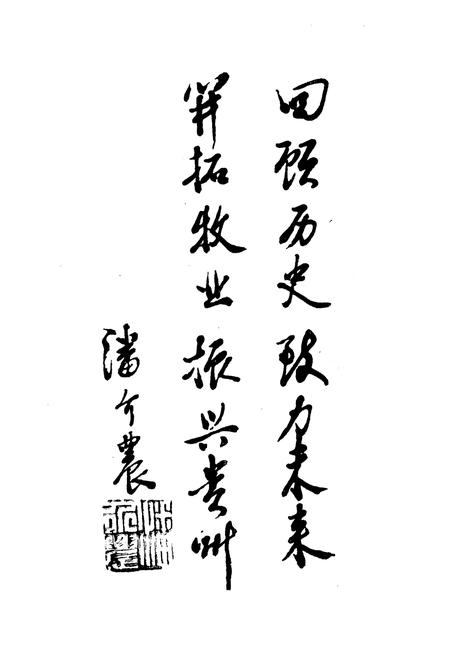 回顾历史 致力未来
开拓牧业 振兴贵州
潘今農